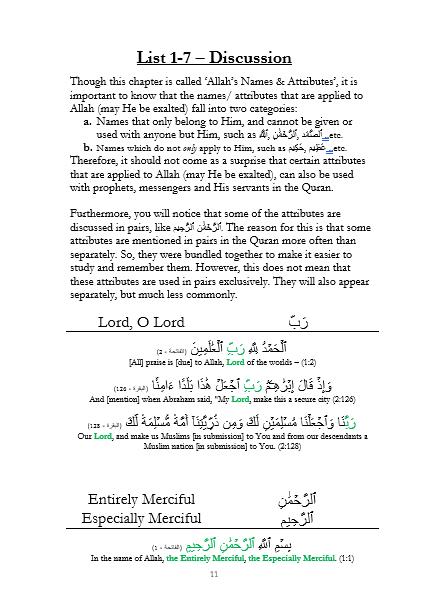 List 1-7 – Discussion
Though this chapter is called ‘Allah’s Names & Attributes’, it is
important to know that the names/ attributes that are applied to
Allah (may He be exalted) fall into two categories:
a. Names that only belong to Him, and cannot be given or
used with anyone but Him, such as ٱللَّٰه, ٱلرَّحْمَٰن, ٱلصَّمَد…etc.
b. Names which do not only apply to Him, such as حَكِيم, عَظِيم…etc.
Therefore, it should not come as a surprise that certain attributes
that are applied to Allah (may He be exalted), can also be used
with prophets, messengers and His servants in the Quran.
Furthermore, you will notice that some of the attributes are
discussed in pairs, like ٱلرَّحْمَٰن ٱلرَّحِيم. The reason for this is that some
attributes are mentioned in pairs in the Quran more often than
separately. So, they were bundled together to make it easier to
study and remember them. However, this does not mean that
these attributes are used in pairs exclusively. They will also appear
separately, but much less commonly.
Lord, O Lord رَبّ
ٱلْحَمْدُ لِلَّهِ رَبِّ ٱلْعَٰلَمِينَ (الفاتحة - 2)
[All] praise is [due] to Allah, Lord of the worlds – (1:2)
وَإِذْ قَالَ إِبْرَٰهِـۧمُ رَبِّ ٱجْعَلْ هَٰذَا بَلَدًا ءَامِنًا (البقرة - 126)
And [mention] when Abraham said, "My Lord, make this a secure city (2:126)
رَبَّنَا وَٱجْعَلْنَا مُسْلِمَيْنِ لَكَ وَمِن ذُرِّيَّتِنَآ أُمَّةً مُّسْلِمَةً لَّكَ (البقرة - 128)
Our Lord, and make us Muslims [in submission] to You and from our descendants a
Muslim nation [in submission] to You. (2:128)
Entirely Merciful ٱلرَّحْمَٰنِ
Especially Merciful ٱلرَّحِيمِ
بِسْمِ ٱللَّهِ ٱلرَّحْمَٰنِ ٱلرَّحِيمِ (الفاتحة - 1)
In the name of Allah, the Entirely Merciful, the Especially Merciful. (1:1)
11